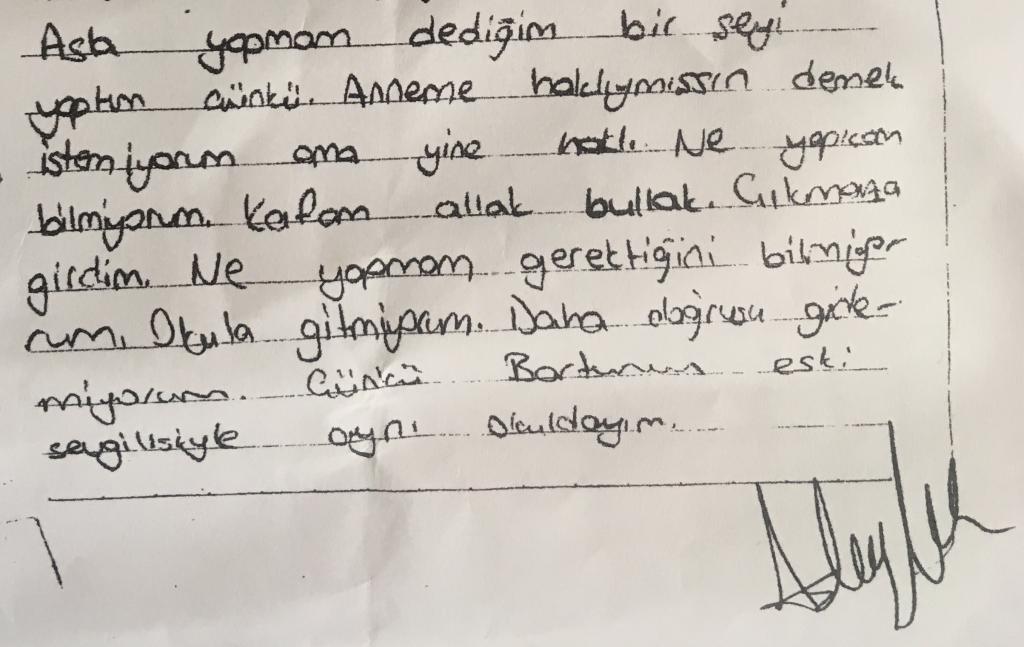 Asla yapmam dediğim bir şeyi
yaptım çünkü. Anneme haklıymışsın demek
istemiyorum ama yine haklı. Ne yapıcam
bilmiyorum. Kafam allak bullak. Çıkmaza
girdim. Ne yapmam gerektiğini bilmiyor
rum. Okula gitmiyorum. Daha doğrusu gide-
miyorum. Çünkü Bartunun eski
sevgilisiyle aynı okuldayım.